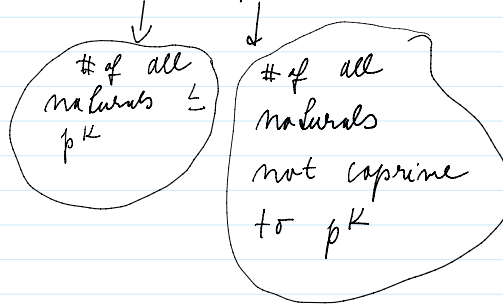 # of all
naturals ≤
p^k
# of all
naturals
not coprime
to p^k